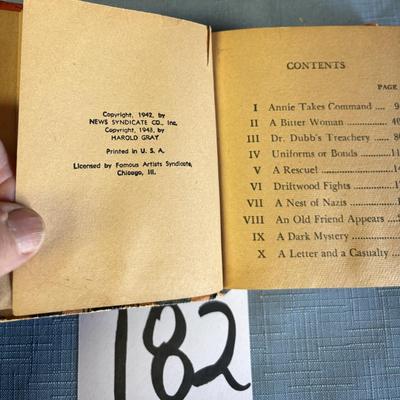 Copyright, 1942, by
NEWS SYNDICATE CO., Inc.
Copyright, 1943, by
HAROLD GRAY
Printed in U. S. A.
Licensed by Famous Artists Syndicate,
Chicago, Ill.
CONTENTS
PAGE
I Annie Takes Command 9
II A Bitter Woman 40
III Dr. Dubb's Treachery
IV Uniforms or Bonds
V A Rescue!
VI Driftwood Fights
VII A Nest of Nazis
VIII An Old Friend Appears
IX A Dark Mystery
X A Letter and a Casualty
182